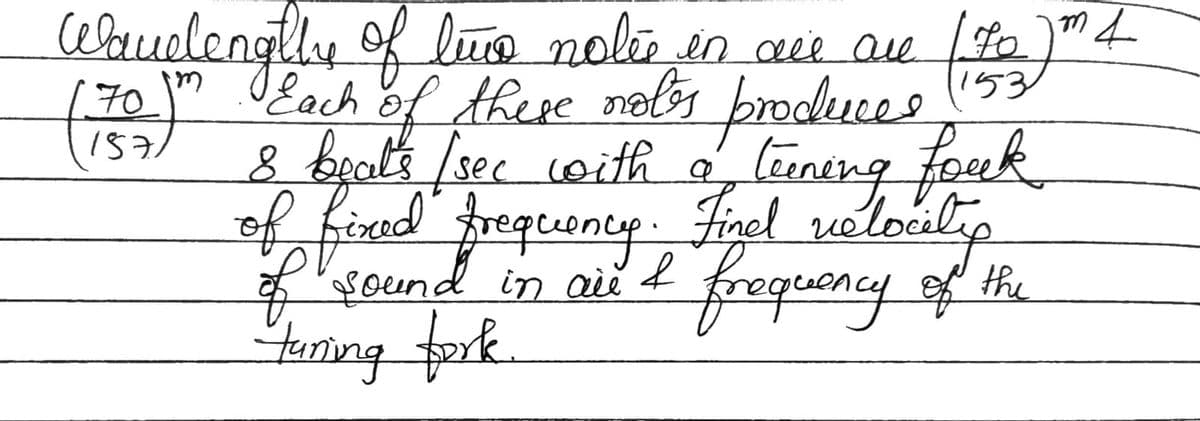 Wavelengths of two notes in air are (70/153)m &
(70/157)m Each of these notes produces
8 beats /sec with a tuning fork
of fixed frequency. Find velocity
of sound in air & frequency of the
tuning fork.